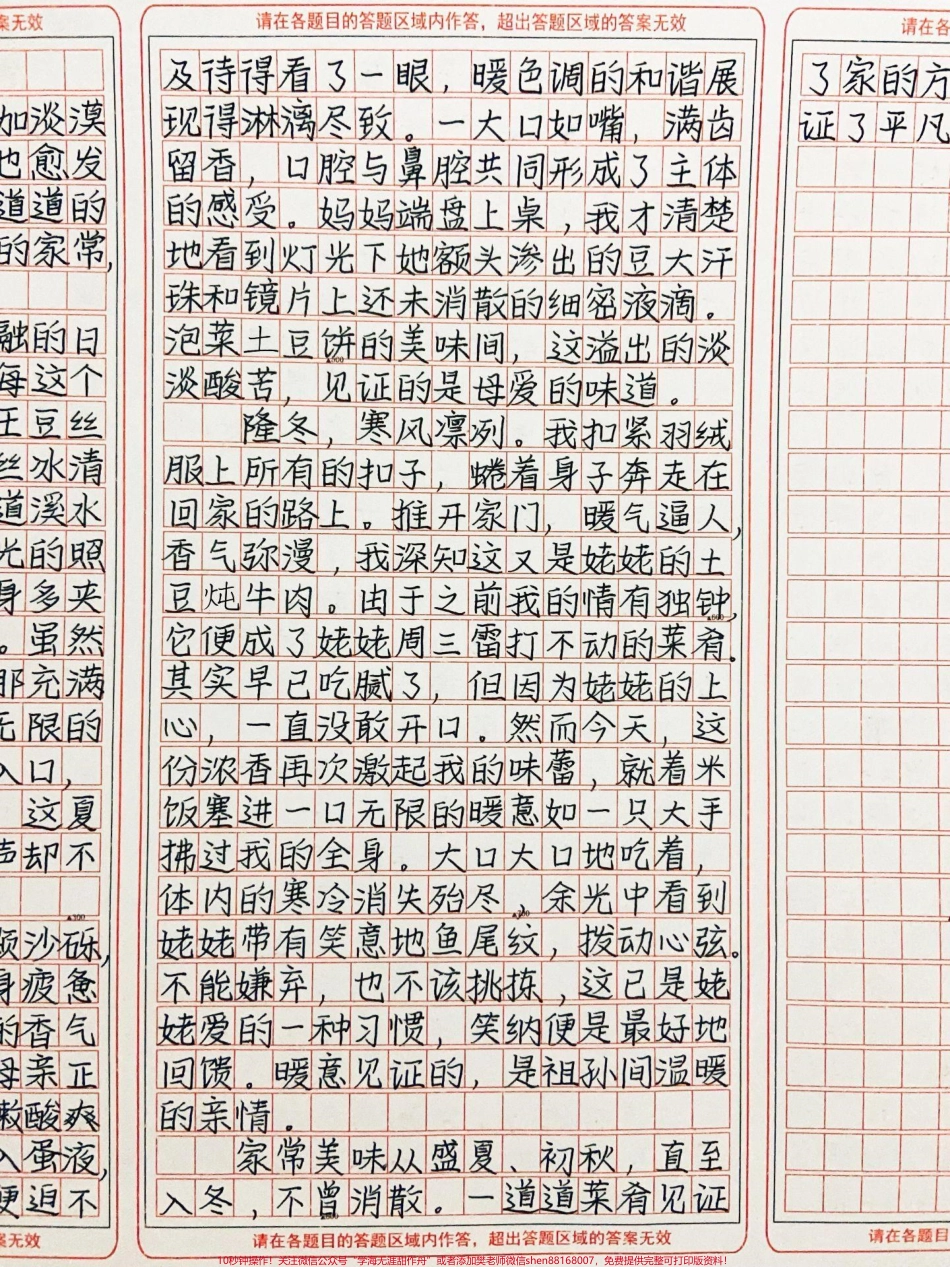 案无效
加淡漠
也愈发
道道的
的家常,
融的日
每这个
王豆丝
丝冰清
道溪水
光的照
身多夹
。虽然
那充满
无限的
入口,
这夏
声却不
▲300
颗沙砾,
身疲惫
的香气
母亲正
嫩酸爽
入蛋液,
便迫不
案无效
请在各题目的答题区域内作答，超出答题区域的答案无效
及待得看了一眼，暖色调的和谐展
现得淋漓尽致。一大口如嘴，满齿
留香，口腔与鼻腔共同形成了主体
的感受。妈妈端盘上桌，我才清楚
地看到灯光下她额头渗出的豆大汗
珠和镜片上还未消散的细密液滴。
泡菜土豆饼的美味间，这溢出的淡
淡酸苦，见证的是母爱的味道。
隆冬，寒风凛冽。我扣紧羽绒
服上所有的扣子，蜷着身子奔走在
回家的路上。推开家门，暖气逼人，
香气弥漫，我深知这又是姥姥的土
豆炖牛肉。由于之前我的情有独钟，
它便成了姥姥周三雷打不动的菜肴。
其实早已吃腻了，但因为姥姥的上
心，一直没敢开口。然而今天，这
份浓香再次激起我的味蕾，就着米
饭塞进一口无限的暖意如一只大手
拂过我的全身。大口大口地吃着，
体内的寒冷消失殆尽，余光中看到
姥姥带有笑意地鱼尾纹，拨动心弦。
不能嫌弃，也不该挑拣，这已是姥
姥爱的一种习惯，笑纳便是最好地
回馈。暖意见证的，是祖孙间温暖
的亲情。
家常美味从盛夏、初秋，直至
入冬，不曾消散。一道道菜肴见证
请在各题目的答题区域内作答，超出答题区域的答案无效
请在各
了家的方
证了平凡
请在各题目
10秒钟操作！关注微信公众号“学海无涯甜作舟”或者添加樊老师微信shen88168007，免费提供完整可打印版资料！